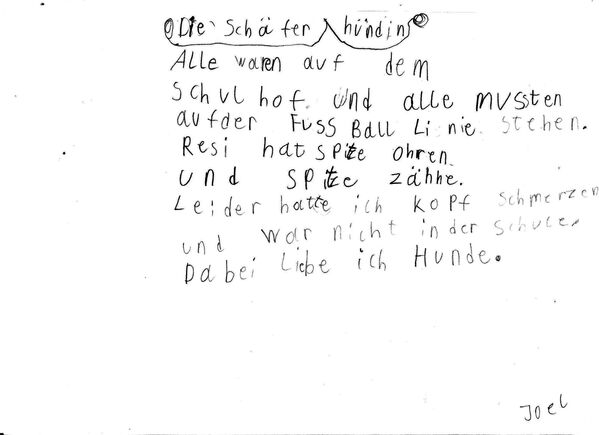 Die Schäferhündin
Alle waren auf dem
Schulhof und alle mussten
auf der Fuss Ball Linie stehen.
Resi hat spitze ohren.
und spitze zähne.
Leider hatte ich Kopf schmerzen
und war nicht in der Schule.
Dabei Liebe ich Hunde.
Joel